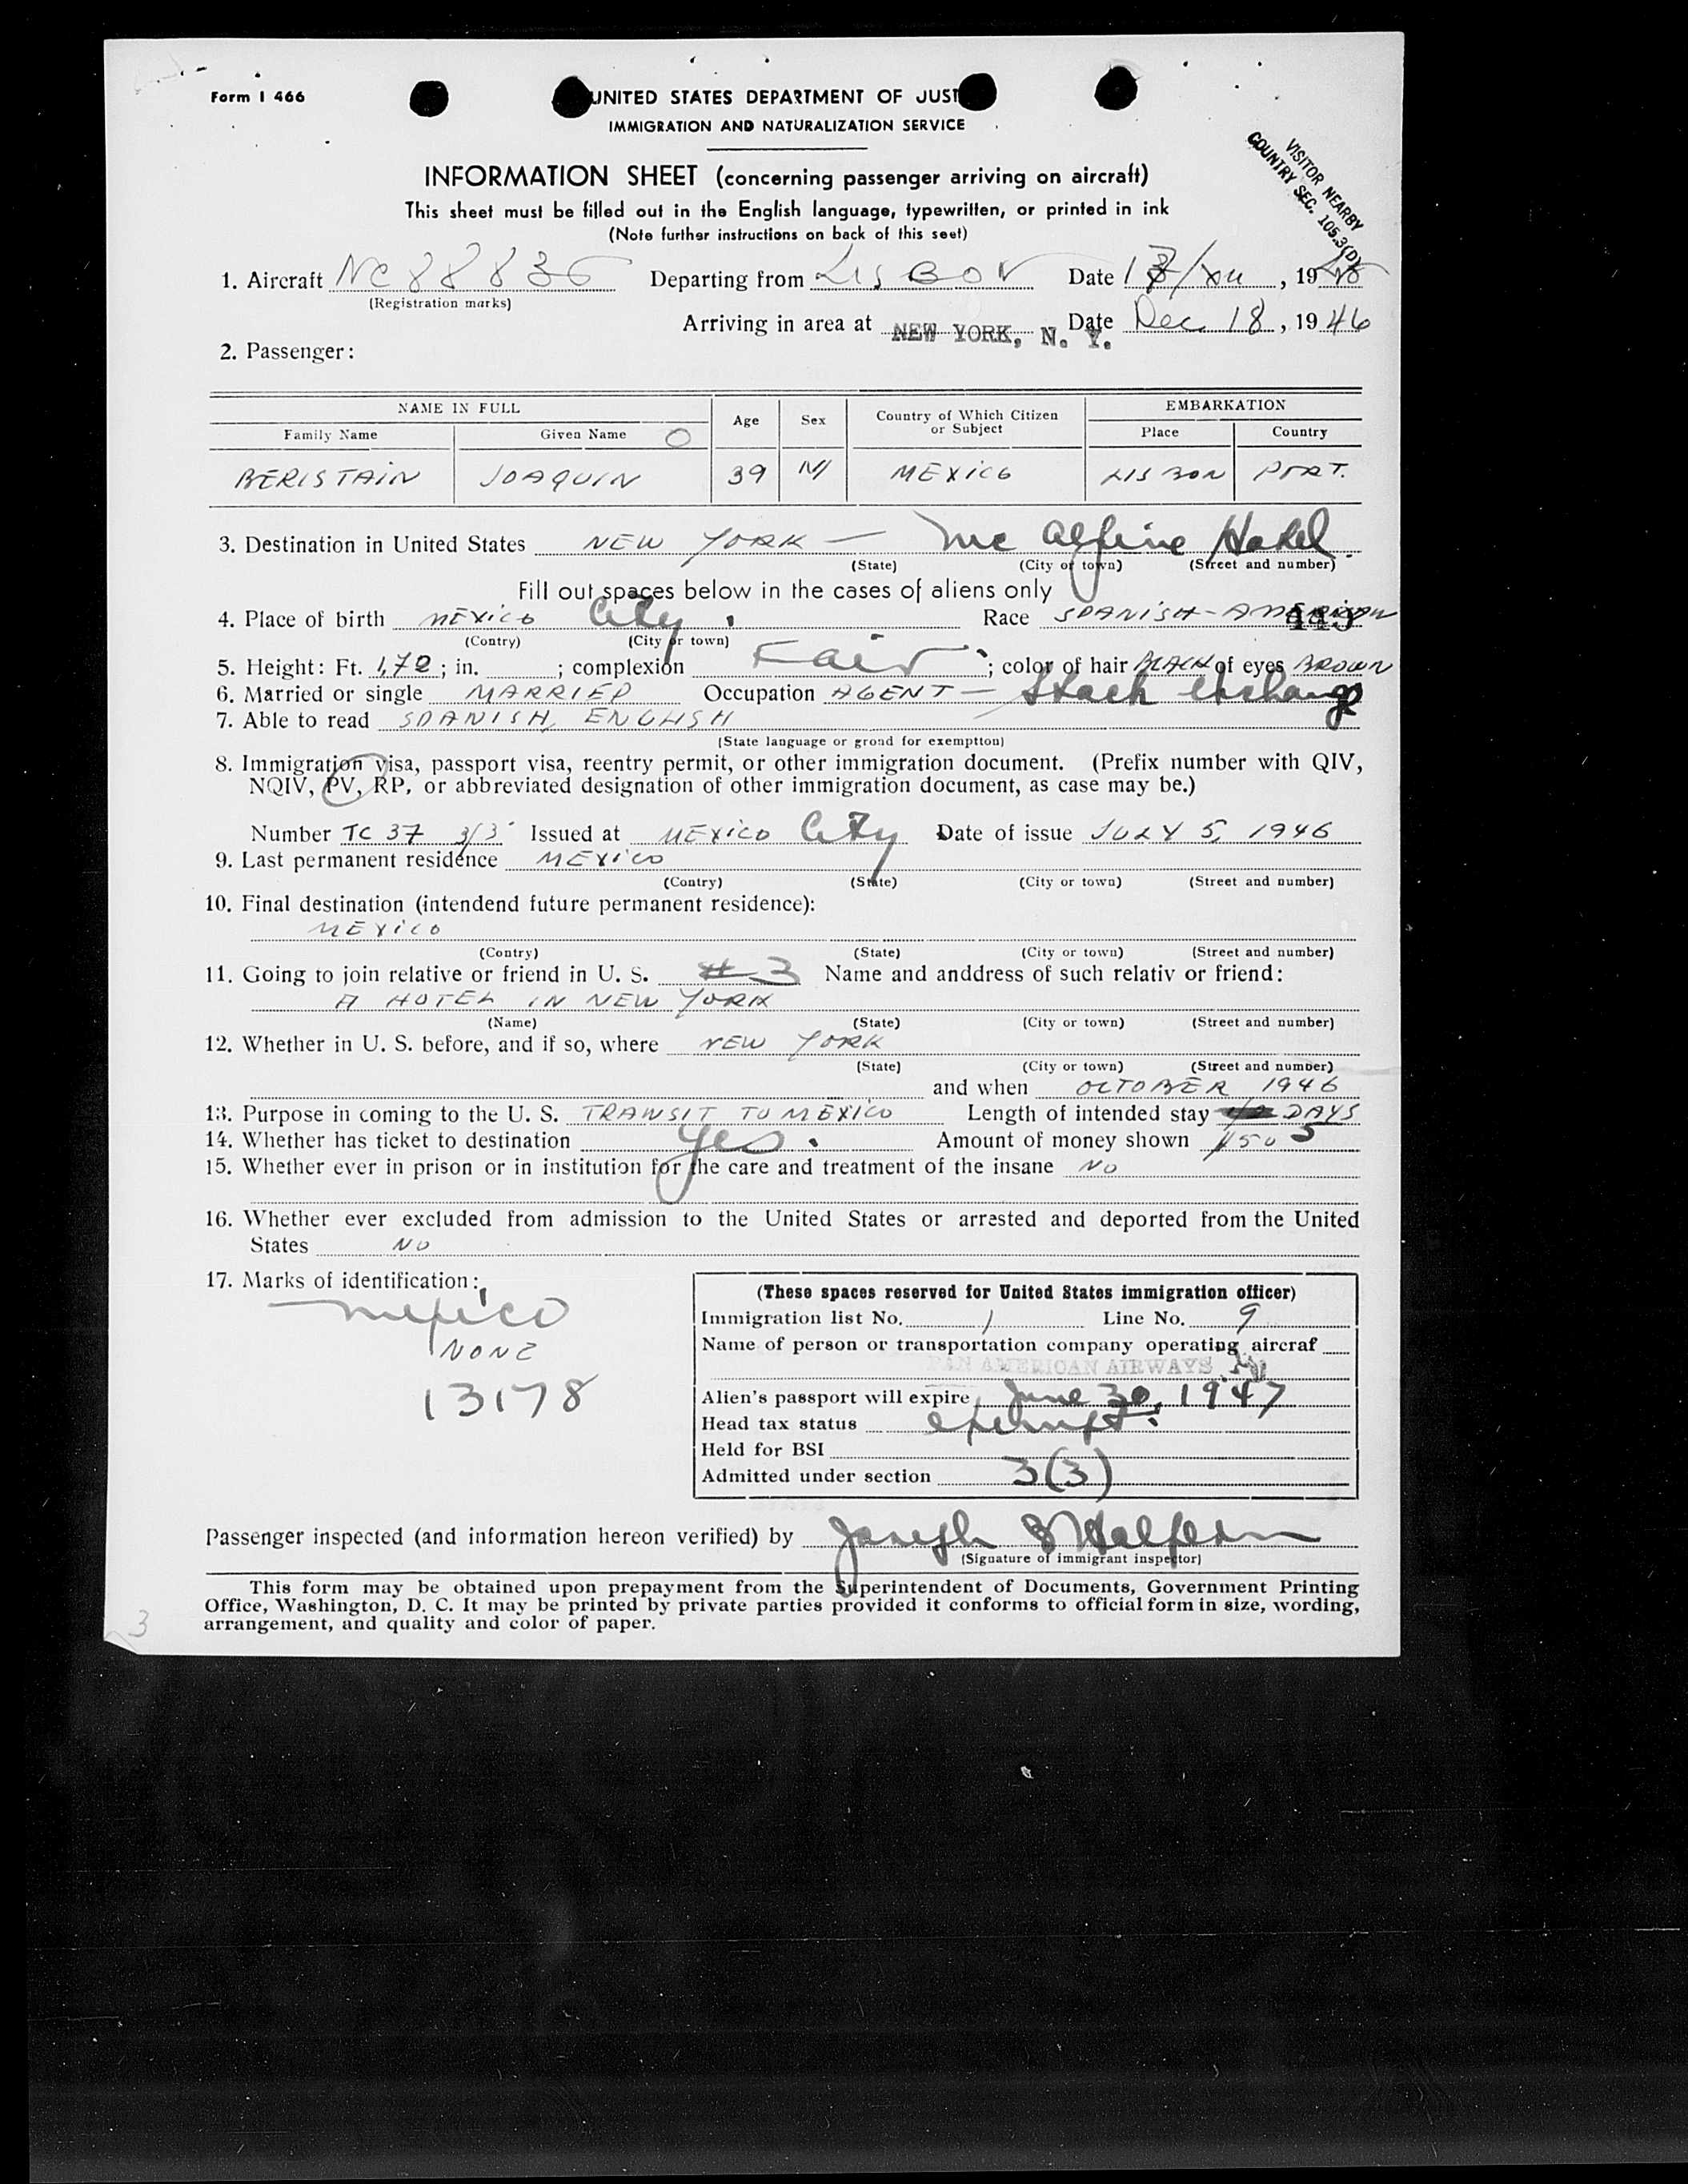 Form I 466
UNITED STATES DEPARTMENT OF JUST
IMMIGRATION AND NATURALIZATION SERVICE
VISITOR NEARBY
COUNTRY SEC. 105.3(D)
INFORMATION SHEET (concerning passenger arriving on aircraft)
This sheet must be filled out in the English language, typewritten, or printed in ink
(Note further instructions on back of this seet)
1. Aircraft NC 88836 Departing from LISBON Date /XII, 1946
(Registration marks)
Arriving in area at NEW YORK, N. Y. Date Dec. 18, 1946
2. Passenger:
NAME IN FULL Age Sex Country of Which Citizen or Subject EMBARKATION
Family Name Given Name Place Country
BERISTAIN JOAQUIN 39 M MEXICO LISBON PORT.
3. Destination in United States NEW YORK — Mc Alpine Hotel.
(State) (City or town) (Street and number)
Fill out spaces below in the cases of aliens only
4. Place of birth MEXICO City. Race SPANISH-AMERICAN
(Contry) (City or town)
5. Height: Ft. 1,72; in. ; complexion Fair; color of hair BLACK of eyes BROWN
6. Married or single MARRIED Occupation AGENT — Stock Exchange
7. Able to read SPANISH, ENGLISH
(State language or grond for exemptton)
8. Immigration visa, passport visa, reentry permit, or other immigration document. (Prefix number with QIV,
NQIV, PV, RP, or abbreviated designation of other immigration document, as case may be.)
Number TC 37 3/3 Issued at MEXICO City Date of issue JULY 5, 1946
9. Last permanent residence MEXICO
(Contry) (State) (City or town) (Street and number)
10. Final destination (intendend future permanent residence):
MEXICO
(Contry) (State) (City or town) (Street and number)
11. Going to join relative or friend in U. S. # 3 Name and anddress of such relativ or friend:
A HOTEL IN NEW YORK
(Name) (State) (City or town) (Street and number)
12. Whether in U. S. before, and if so, where NEW YORK
(State) (City or town) (Street and number)
and when OCTOBER 1946
13. Purpose in coming to the U. S. TRANSIT TO MEXICO Length of intended stay DAYS
14. Whether has ticket to destination Yes. Amount of money shown $150 5
15. Whether ever in prison or in institution for the care and treatment of the insane NO
16. Whether ever excluded from admission to the United States or arrested and deported from the United
States NO
17. Marks of identification:
Mexico
NONE
13178
(These spaces reserved for United States immigration officer)
Immigration list No. 1 Line No. 9
Name of person or transportation company operating aircraf
PAN AMERICAN AIRWAYS
Alien's passport will expire June 30, 1947
Head tax status exempt.
Held for BSI
Admitted under section 3(3)
Passenger inspected (and information hereon verified) by Joseph Halpern
(Signature of immigrant inspector)
This form may be obtained upon prepayment from the Superintendent of Documents, Government Printing
Office, Washington, D. C. It may be printed by private parties provided it conforms to official form in size, wording,
arrangement, and quality and color of paper.
3